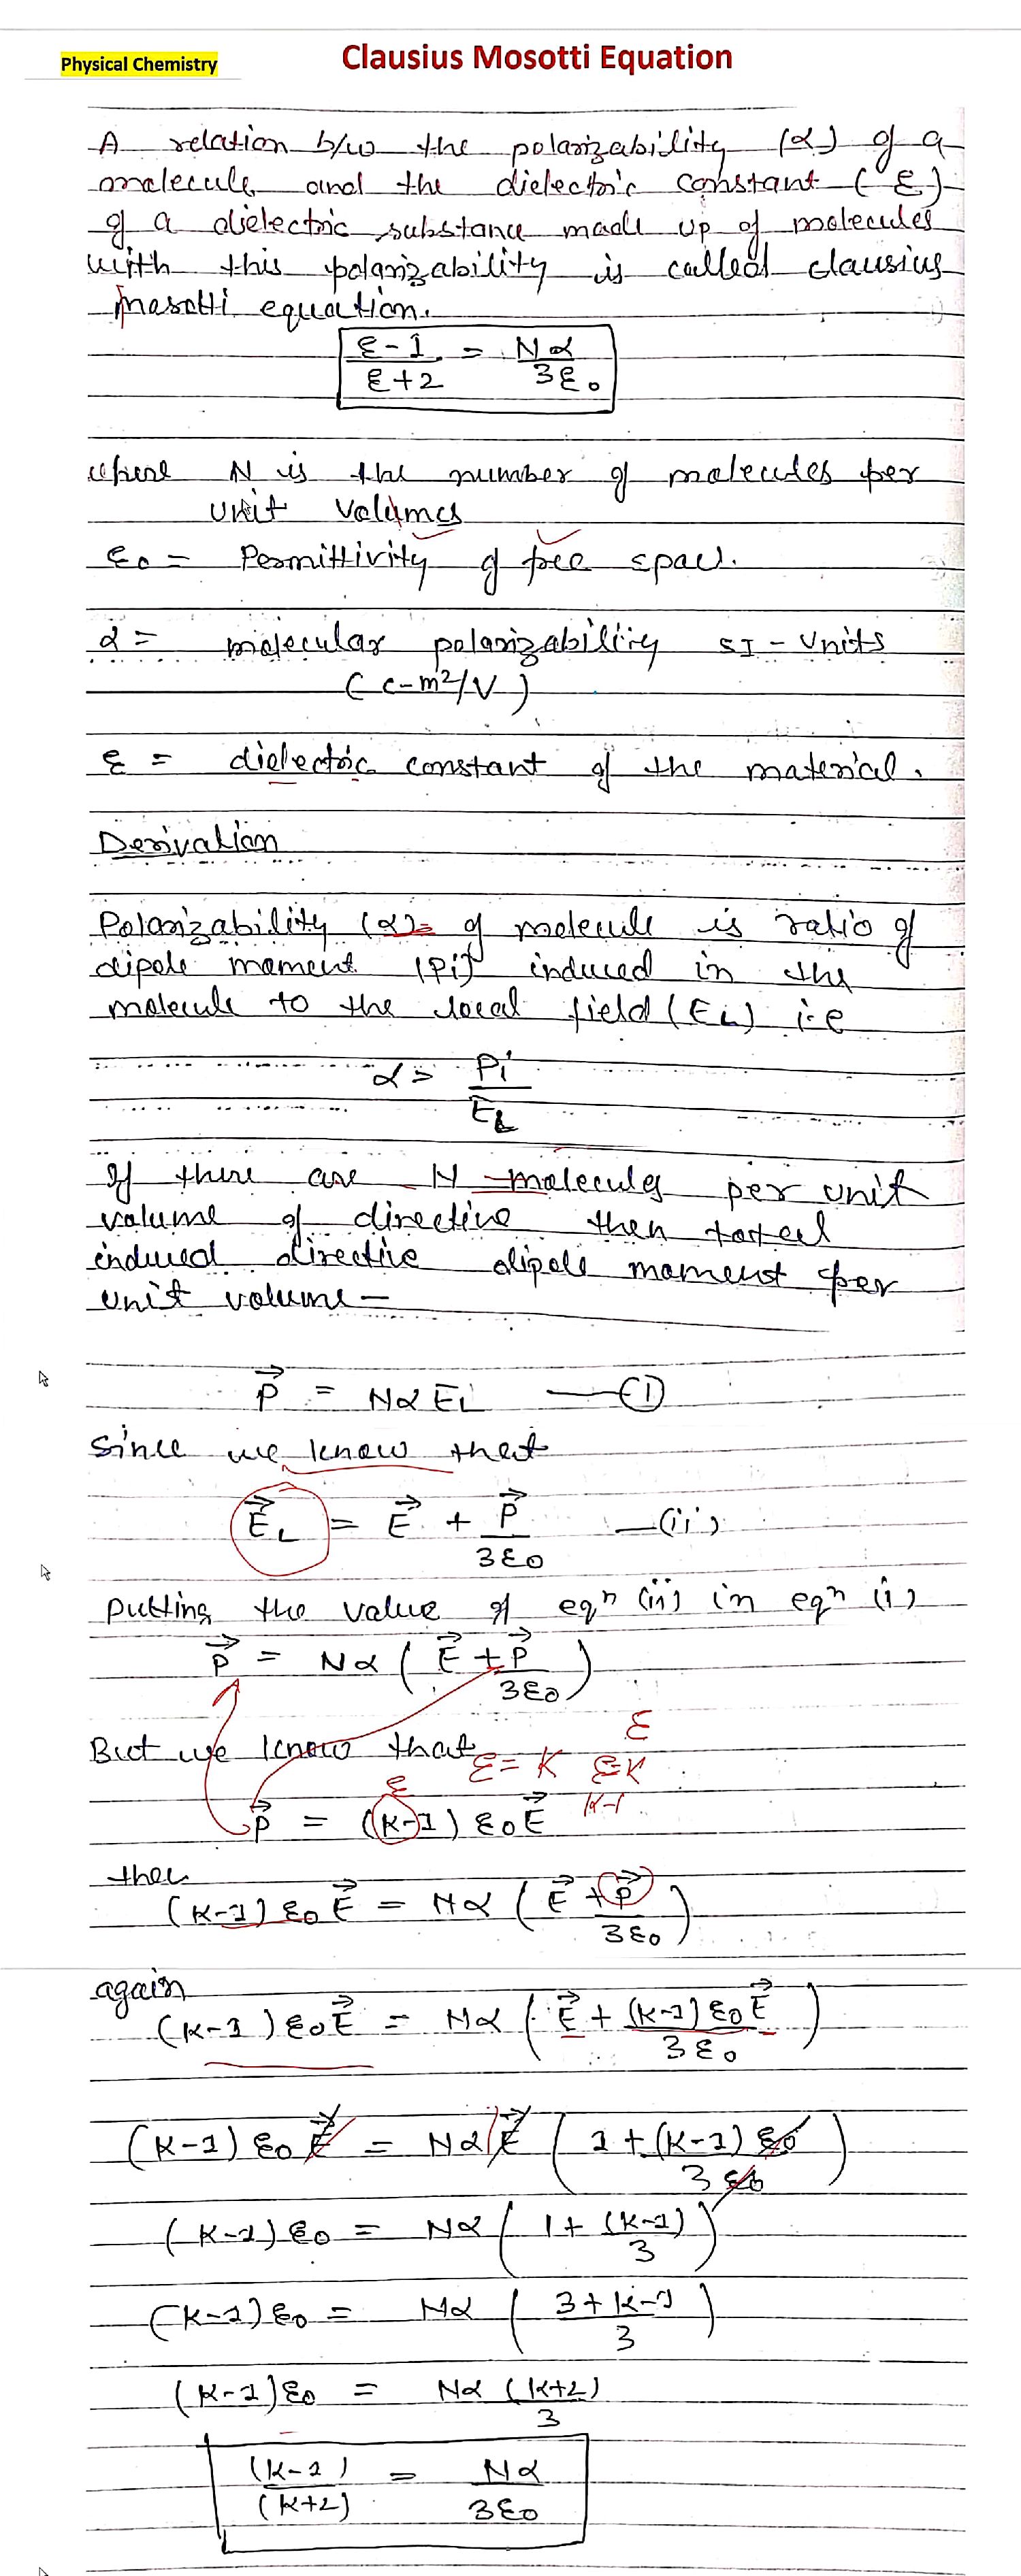 Physical Chemistry
Clausius Mosotti Equation
A relation b/w the polarizability (α) of a
molecule and the dielectric constant (ε)
of a dielectric substance made up of molecules
with this polarizability is called clausius
mosotti equation.
ε-1 / ε+2 = Nα / 3ε₀
where N is the number of molecules per
unit volumes
ε₀ = Permittivity of free space.
α = molecular polarizability SI - units
(c-m²/V)
ε = dielectric constant of the material.
Derivation
Polarizability (α) of molecule is ratio of
dipole moment (Pi) induced in the
molecule to the local field (EL) i.e
α = Pi / EL
If there are N molecules per unit
volume of directive then total
induced directive dipole moment per
unit volume -
P⃗ = NαEL — (i)
Since we know that
E⃗L = E⃗ + P⃗ / 3ε₀ — (ii)
putting the value of eqⁿ (ii) in eqⁿ (i)
P⃗ = Nα ( E⃗ + P⃗ / 3ε₀ )
ε
But we know that ε = K ε=K
ε
P⃗ = (K-1) ε₀E⃗ K-1
then
(K-1) ε₀ E⃗ = Nα ( E⃗ + P⃗ / 3ε₀ )
again
(K-1) ε₀E⃗ = Nα ( E⃗ + (K-1) ε₀E⃗ / 3ε₀ )
(K-1) ε₀ E⃗ = Nα E⃗ ( 1 + (K-1) ε₀ / 3ε₀ )
(K-1) ε₀ = Nα ( 1 + (K-1) / 3 )
(K-1) ε₀ = Nα ( 3+K-1 / 3 )
(K-1) ε₀ = Nα (K+2) / 3
(K-1) / (K+2) = Nα / 3ε₀